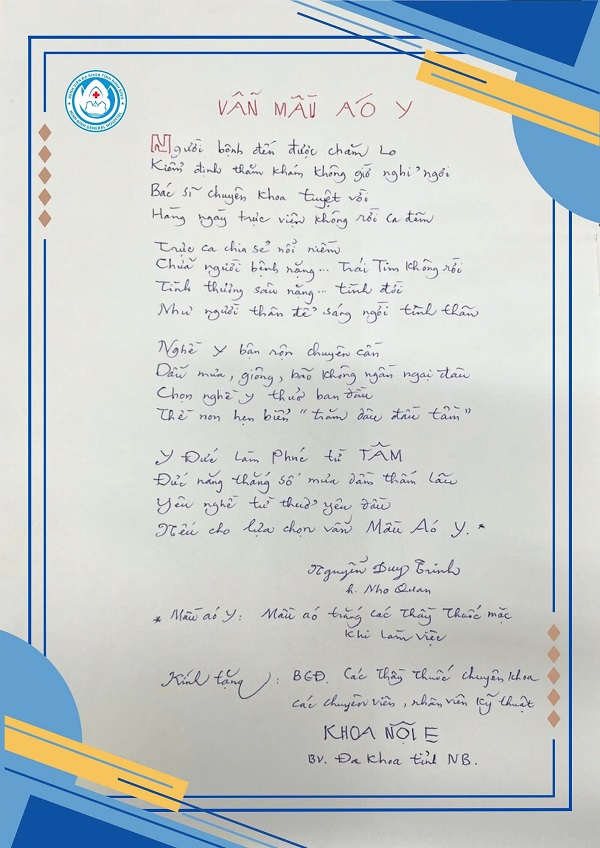 BỆNH VIỆN ĐA KHOA TỈNH NINH BÌNH
NINH BINH GENERAL HOSPITAL
VẪN MẦU ÁO Y
Người bệnh đến được chăm Lo
Kiểm định thăm khám không giờ nghỉ ngơi
Bác sĩ chuyên khoa tuyệt vời
Hàng ngày trực viện không rời ca đêm
Trực ca chia sẻ nỗi niềm
Chữa người bệnh nặng... Trái Tim không rời
Tình thương sâu nặng... tình đời
Như người thân để sáng ngời tình thân
Nghề Y bận rộn chuyên cần
Dẫu mưa, giông, bão không ngần ngại đâu
Chọn nghề y thuở ban đầu
Thề non hẹn biển "trăm dâu đầu tằm"
Y Đức Làm Phúc từ TÂM
Đức năng thắng số mưa dầm thấm lâu
Yêu nghề từ thuở yêu đầu
Nếu cho lựa chọn vẫn Mầu Áo Y. *
Nguyễn Duy Trinh
h. Nho Quan
* Mầu áo Y: Mầu áo trắng các Thầy Thuốc mặc
Khi Làm việc
Kính tặng: BGĐ. Các thầy thuốc chuyên khoa
các chuyên viên, nhân viên kỹ thuật
KHOA NỘI E
BV. Đa Khoa tỉnh NB.